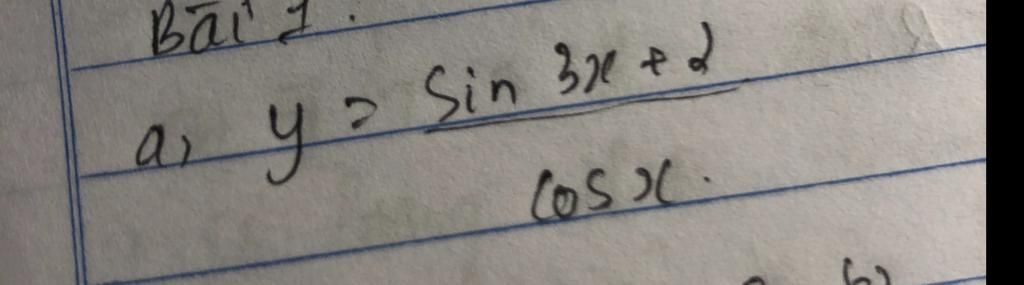 Bài 1.
a, y = sin 3x + 2
cos x.
b)